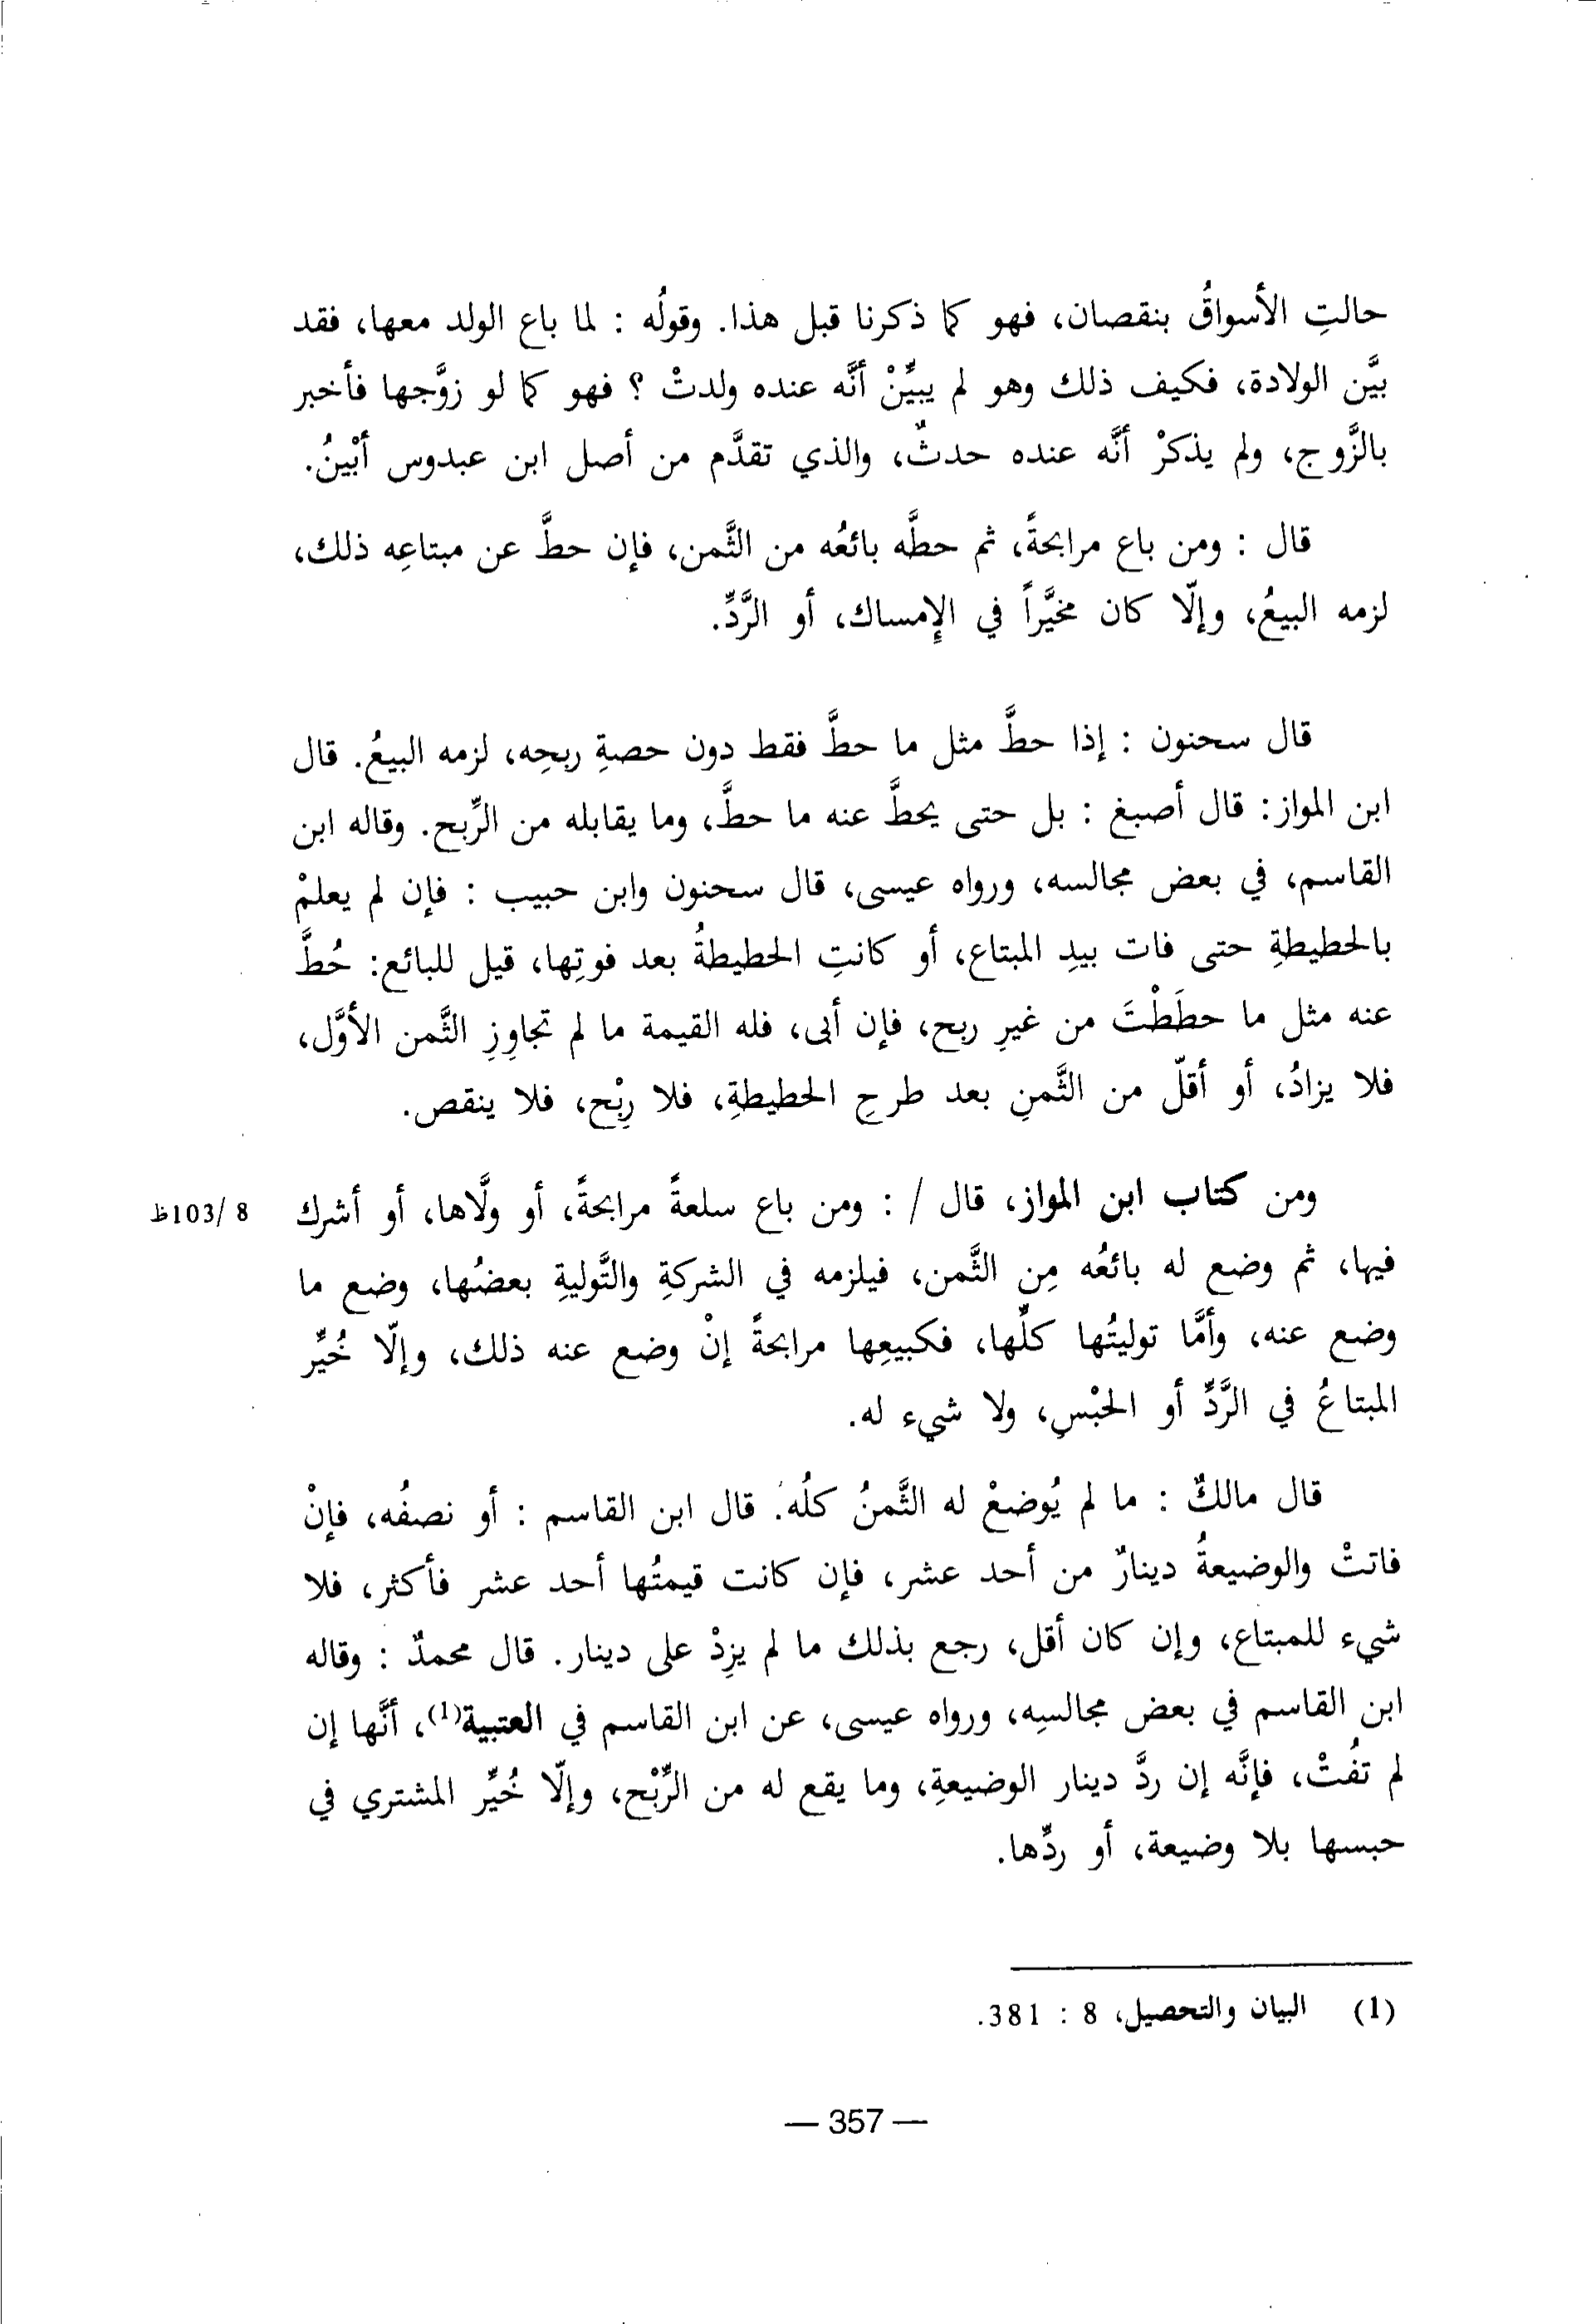 حالتِ الأسواقُ بنقصان، فهو كما ذكرنا قبل هذا. وقولُه : لما باع الولد معها، فقد
بيَّن الولادة، فكيف ذلك وهو لم يبيِّنْ أنَّه عنده ولدتْ ؟ فهو كما لو زوَّجها فأخبر
بالزَّوج، ولم يذكرْ أنَّه عنده حدثٌ، والذي تقدَّم من أصل ابن عبدوس أبْينُ.
قال : ومن باع مرابحةً، ثم حطَّه بائعُه من الثَّمن، فإن حطَّ عن مبتاعِه ذلك،
لزمه البيعُ، وإلّا كان مخيَّراً في الإمساك، أو الرَّدِّ.
قال سحنون : إذا حطَّ مثل ما حطَّ فقط دون حصةِ ربحِه، لزمه البيعُ. قال
ابن المواز: قال أصبغ : بل حتى يحطَّ عنه ما حطَّ، وما يقابله من الرِّبح. وقاله ابن
القاسم، في بعض مجالسه، ورواه عيسى، قال سحنون وابن حبيب : فإن لم يعلمْ
بالحطيطةِ حتى فات بيدِ المبتاع، أو كانتِ الحطيطةُ بعد فوتِها، قيل للبائع: حُطَّ
عنه مثل ما حطَطْتَ من غيرِ ربح، فإن أبى، فله القيمة ما لم تجاوِزِ الثَّمن الأوَّل،
فلا يزادُ، أو أقلّ من الثَّمنِ بعد طرحِ الحطيطةِ، فلا رِبْح، فلا ينقص.
ومن كتاب ابن المواز، قال / : ومن باع سلعةً مرابحةً، أو ولَّاها، أو أشرك
8 /103ظ
فيها، ثم وضع له بائعُه مِن الثَّمن، فيلزمه في الشركةِ والتَّوليةِ بعضُها، وضع ما
وضع عنه، وأمَّا توليتُها كلِّها، فكبيعِها مرابحةً إنْ وضع عنه ذلك، وإلّا خُيِّر
المبتاعُ في الرَّدِّ أو الحبْسِ، ولا شيء له.
قال مالكٌ : ما لم يُوضعْ له الثَّمنُ كلُه. قال ابن القاسم : أو نصفُه، فإنْ
فاتتْ والوضيعةُ دينارٌ من أحد عشر، فإن كانت قيمتُها أحد عشر فأكثر، فلا
شيء للمبتاع، وإن كان أقل، رجع بذلك ما لم يزِدْ على دينار. قال محمدٌ : وقاله
ابن القاسم في بعض مجالسِه، ورواه عيسى، عن ابن القاسم في العتبية(1)، أنَّها إن
لم تفُتْ، فإنَّه إن ردَّ دينار الوضيعةِ، وما يقع له من الرِّبْح، وإلّا خُيِّر المشتري في
حبسها بلا وضيعة، أو ردِّها.
(1) البيان والتحصيل، 8 : 381.
— 357 —